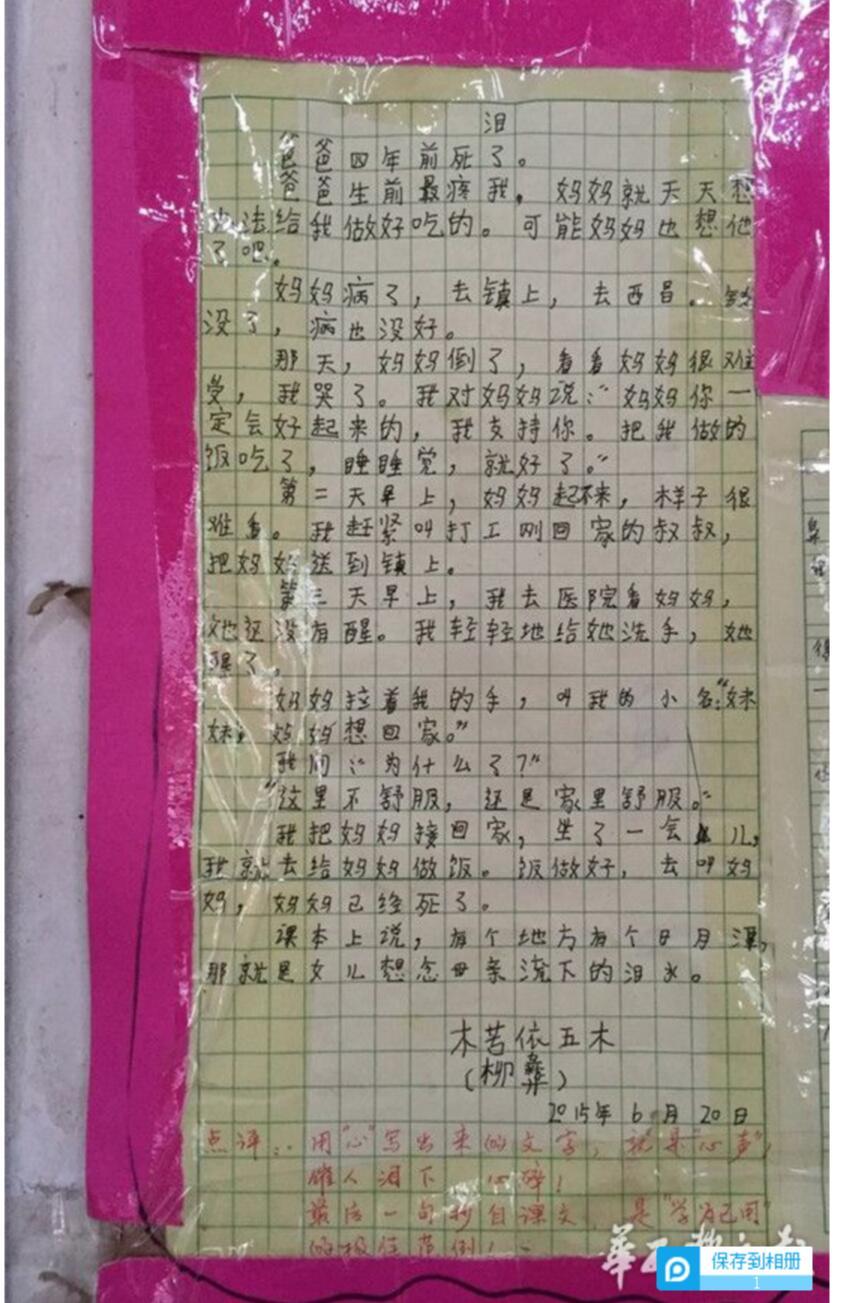 泪
爸爸四年前死了。
爸爸生前最疼我，妈妈就天天想
办法给我做好吃的。可能妈妈也想他
了吧。
妈妈病了，去镇上，去西昌。钱
没了，病也没好。
那天，妈妈倒了，看看妈妈很难
受，我哭了。我对妈妈说：“妈妈你一
定会好起来的，我支持你。把我做的
饭吃了，睡睡觉，就好了。”
第二天早上，妈妈起不来，样子很
难看。我赶紧叫打工刚回家的叔叔，
把妈妈送到镇上。
第三天早上，我去医院看妈妈，
她还没有醒。我轻轻地给她洗手，她
醒了。
妈妈拉着我的手，叫我的小名：“妹
妹，妈妈想回家。”
我问：“为什么了？”
“这里不舒服，还是家里舒服。”
我把妈妈接回家，坐了一会儿，
我就去给妈妈做饭。饭做好，去叫妈
妈，妈妈已经死了。
课本上说，有个地方有个日月潭，
那就是女儿想念母亲流下的泪水。
木苦依五木
（柳彝）
2015年6月20日
点评：用“心”写出来的文字，就是“心声”，
催人泪下 心碎！
最后一句抄自课文，是“学为己用”
的极佳范例！
华西都市报
保存到相册
1